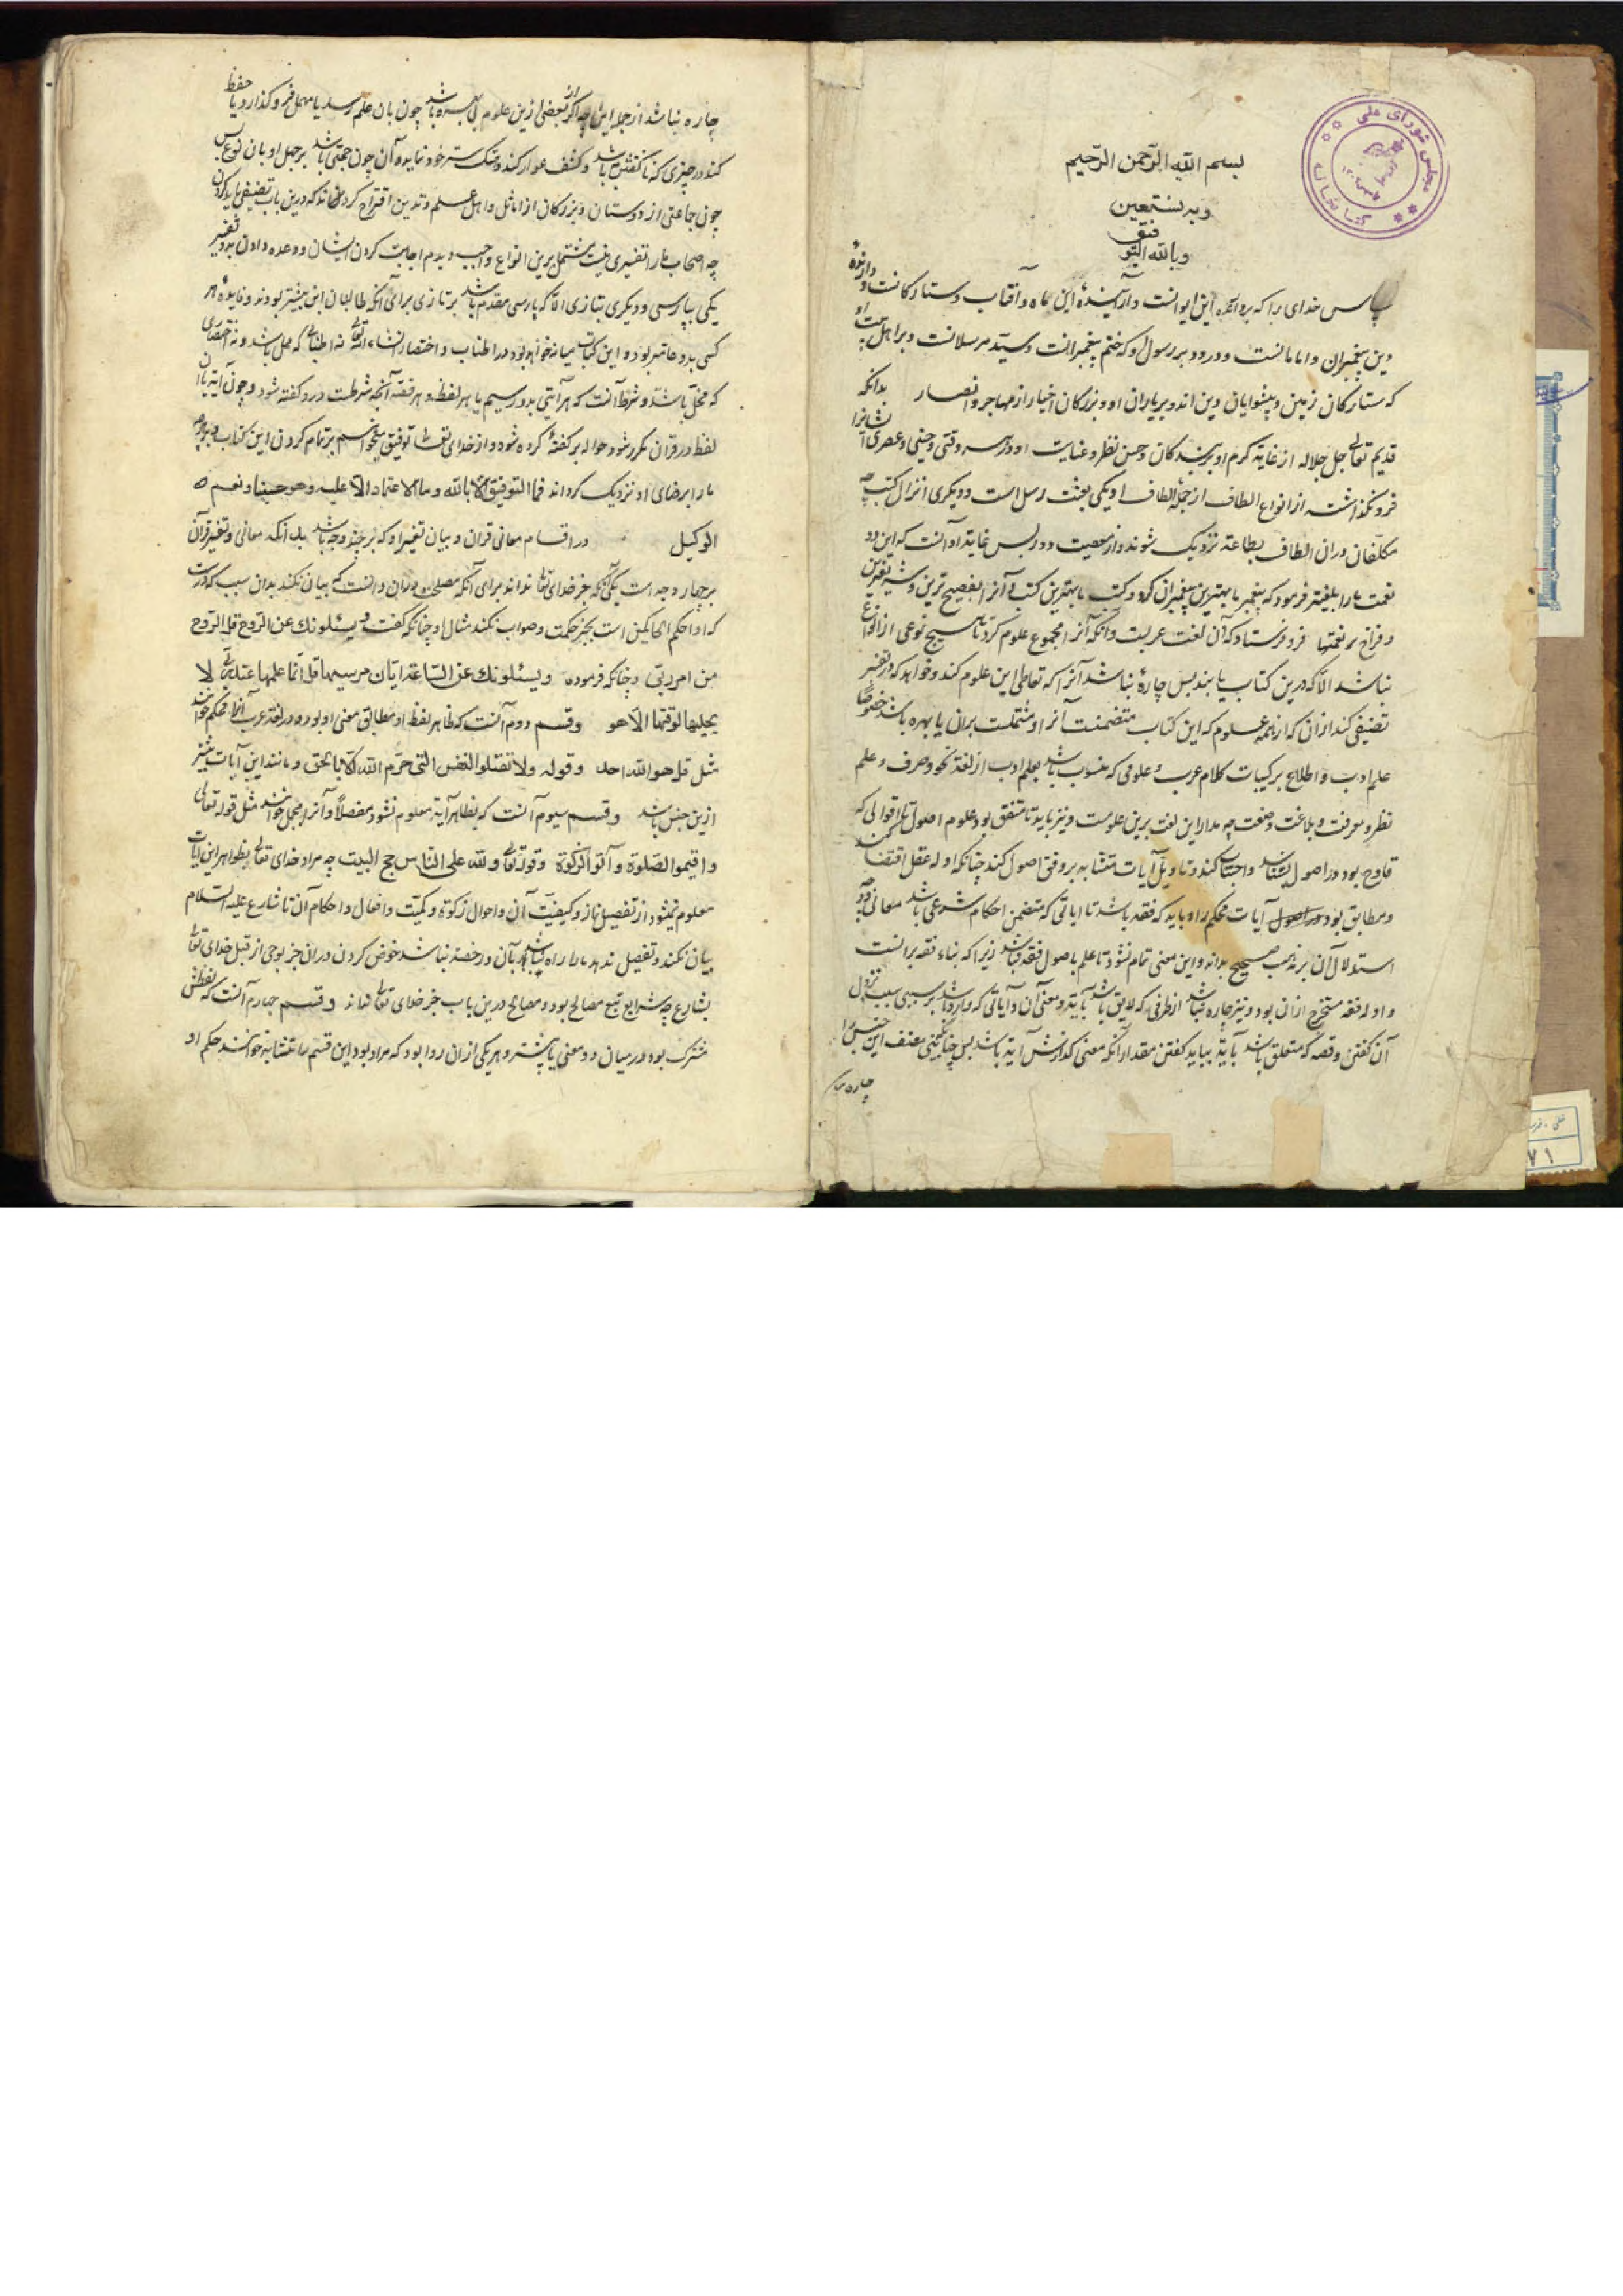 بسم الله الرحمن الرحیم
وبه نستعین
وبالله التوفیق
سپاس خدای را که بردارنده این ایوانست وآراینده این بماه وآفتاب وستارکانست ودارنده
دین پیغمبران وامامانست ودرود بر رسول او که ختم پیغمبرانست وسید مرسلانست وبر اهل بیت او
که ستارکان زمین وپیشوایان دین اند وبر یاران او وبزرکان اخیار از مهاجر وانصار بدانکه
قدیم تعالی جل جلاله از غایة کرم او بر بندکان وحسن نظر وعنایت او در هر وقتی وحینی وعصری ایشانرا
فرو نکذاشت از انواع الطاف از جمله الطاف او یکی بعثت رسل است ودیکری انزال کتب چه
مکلفان دران الطاف بطاعة نزدیک شوند واز معصیت دور پس غایة او آنست که این دو
نعمت ما را بلیغتر فرمود که پیغمبر ما بهترین پیغمبران کرد وکتب ما بهترین کتب وآنرا بفصیح ترین
وفراخ تر لغتها فرو فرستاد که آن لغت عربست وآنکه آنرا مجموع علوم کرد تا هیچ نوعی از انواع
نباشد الا که درین کتاب یابند پس چارهٔ نباشد آنرا که تعاطی این علوم کند وخواهد که در تفسیر
تصنیفی کند ازان که از همه علوم که این کتاب متضمنست آنرا ومشتملست بران با بهره باشد خصوصا
علم ادب واطلاع بر کیبات کلام عرب وعلومی که منسوب باشد بعلم ادب از لغة ونحو وصرف وعلم
نظم ومعرفت وبلاغت وصنعت چه مدار این لغت برین علومست ونیز باید تا متفق بود علوم اصول تا اقوالی که
قادح بود در اصول بشناسد واجتناب کند وتاویل آیات متشابه بر وفق اصول کند چنانکه ادله عقل اقتضا کند
ومطابق بود آیات محکم را وباید که فقیه باشد تا ایاتی که متضمن احکام شرعی باشد معانی آن
استدلال آن بر مذهب صحیح بداند واین معنی تمام نشود تا علم باصول فقه نباشد زیرا که بناء فقه برانست
وادله فقه مستخرج ازان بود ونیز چاره نباشد از طرفی که لایق باشد بآیة ومعنی آن وآیاتی که وارد باشد بر سببی سبب نزول
آن کفتن وقصه که متعلق باشد بآیة بباید کفتن مقدار آنکه معنی کذارش آیة باشد پس چنانکه مصنف این جنس را
چاره
چاره نباشد از جمله این چه اکر از بعضی ازین علوم بی بهره باشد چون بان علم رسد یا مهمل فرو کذارد یا خبط
کند در چیزی که ناکفتنی باشد وکشف عوار کند وهتک ستر خود نماید وآن چون حجتی باشد بر جهل او بان نوع پس
چون جماعتی از دوستان وبزرکان از اماثل واهل علم وتدین اقتراح کردند که درین باب تصنیفی باید کردن
چه اصحاب ما را تفسیری نیست مشتمل برین انواع واجب دیدم اجابت کردن ایشان ووعده دادن بدو تفسیر
یکی بپارسی ودیکری بتازی الا که پارسی مقدم باشد بر تازی برای آنکه طالبان این بیشتر بودند وفایده هر
کسی بدو عامتر بود واین کتاب میانه خواهد بود در اطناب واختصار انشاء الله تعالی نه اطنابی که ممل باشد ونه اختصاری
که مخل باشد وشرط آنست که هر آیتی بدو رسیم یا هر لفظ وهر قصه آنچه شرطست درو کفته شود وچون آیتی یا
لفظ در قران مکرر شود حواله بر کفته کرده شود واز خدای تعالی توفیق میخواهیم بر تمام کردن این کتاب وبر هرچه
ما را برضای او نزدیک کرداند فما التوفیق الا بالله وما الاعتماد الا علیه وهو حسبنا ونعم
الوکیل در اقسام معانی قران وبیان تفسیر او که بر چند وجه باشد بدانکه معانی وتفسیر قرآن
بر چهار وجه است یکی آنکه جز خدای تعالی نداند برای آنکه مصلحت دران دانست که بیان نکند بدان سبب که درست
که او احکم الحاکمین است بجز حکمت وصواب نکند مثال او چنانکه کفت ویسئلونک عن الروح قل الروح
من امر ربی وچنانکه فرموده ویسئلونک عن الساعة ایان مرسیها قل انما علمها عند ربی لا
یجلیها لوقتها الا هو وقسم دوم آنست که ظاهر لفظ او مطابق معنی او بود در لغة عرب آنرا محکم خوانند
مثل قل هو الله احد وقوله ولا تقتلوا النفس التی حرم الله الا بالحق ومانند این آیات بیشتر
ازین جنس باشد وقسم سیوم آنست که بظاهر آیة معلوم نشود مفصلا وآنرا مجمل خوانند مثل قوله تعالی
واقیموا الصلوة وآتوا الزکوة وقوله تعالی ولله علی الناس حج البیت چه مراد خدای تعالی بظواهر این آیات
معلوم نمیشود از تفصیل نماز وکیفیت آن واحوال زکوة وکمیت وافعال واحکام آن تا شارع علیه السلام
بیان نکند وتفصیل ندهد ما را راه نباشد بآن ورخصة نباشد خوض کردن دران جز بوحی از قبل خدای تعالی
بشارع چه شرایع تبع مصالح بود ومصالح درین باب جز خدای تعالی نداند وقسم چهارم آنست که لفظش
مشترک بود در میان دو معنی یا بیشتر وهر یکی ازان روا بود که مراد بود این قسم را متشابه خوانند حکم او
مجلس شورای ملی
کتابخانه
۷۱